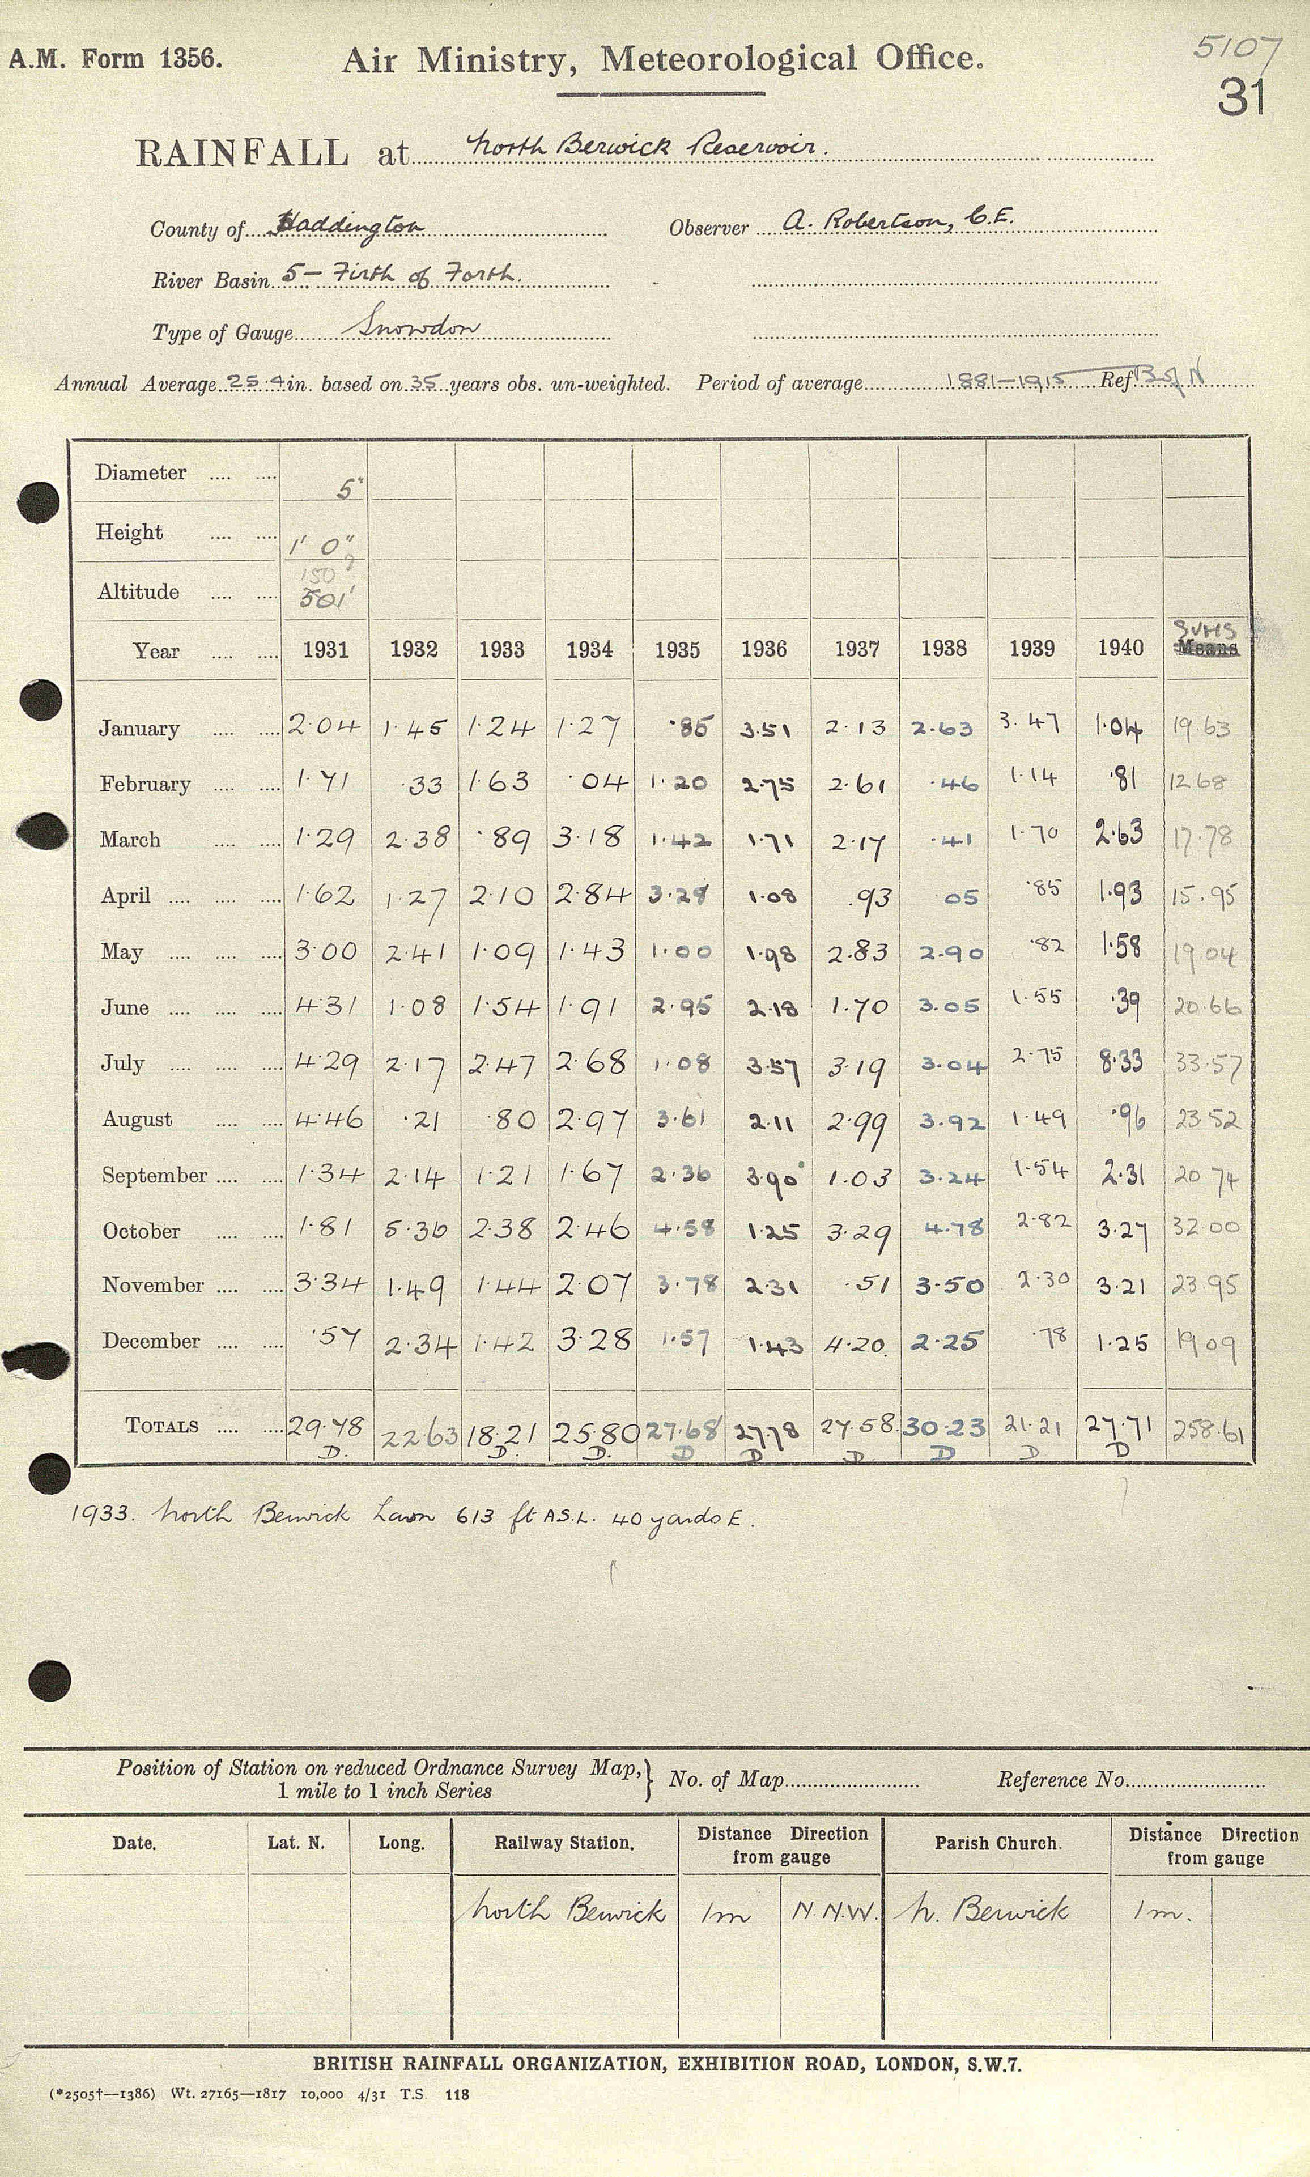 5107
A.M. Form 1356. Air Ministry, Meteorological Office.
31
RAINFALL at North Berwick Reservoir.
County of Haddington Observer A. Robertson, C.E.
River Basin 5 – Firth of Forth.
Type of Gauge Snowdon
Annual Average 25.4 in. based on 35 years obs. un-weighted. Period of average 1881–1915 Ref. B of N
Diameter .... .... 5"
Height .... .... 1' 0"
150
Altitude .... .... 501'
SUMS
Year .... .... 1931 1932 1933 1934 1935 1936 1937 1938 1939 1940 Means
January .... .... 2.04 1.45 1.24 1.27 .85 3.51 2.13 2.63 3.47 1.04 19.63
February .... .... 1.71 .33 1.63 .04 1.20 2.75 2.61 .46 1.14 .81 12.68
March .... .... 1.29 2.38 .89 3.18 1.42 1.71 2.17 .41 1.70 2.63 17.78
April .... .... .... 1.62 1.27 2.10 2.84 3.28 1.08 .93 05 .85 1.93 15.95
May .... .... .... 3.00 2.41 1.09 1.43 1.00 1.98 2.83 2.90 .82 1.58 19.04
June .... .... .... 4.31 1.08 1.54 1.91 2.95 2.18 1.70 3.05 1.55 .39 20.66
July .... .... .... 4.29 2.17 2.47 2.68 1.08 3.57 3.19 3.04 2.75 8.33 33.57
August .... .... 4.46 .21 .80 2.97 3.61 2.11 2.99 3.92 1.49 .96 23.52
September .... .... 1.34 2.14 1.21 1.67 2.36 3.90 1.03 3.24 1.54 2.31 20.74
October .... .... 1.81 5.36 2.38 2.46 4.58 1.25 3.29 4.78 2.82 3.27 32.00
November .... .... 3.34 1.49 1.44 2.07 3.78 2.31 .51 3.50 2.30 3.21 23.95
December .... .... .57 2.34 1.42 3.28 1.57 1.43 4.20 2.25 .78 1.25 19.09
TOTALS .... .... 29.78 22.63 18.21 25.80 27.68 27.78 27.58 30.23 21.21 27.71 258.61
D. D. D. D D D. D D D
1933. North Berwick Lawn 613 ft A.S.L. 40 yards E.
Position of Station on reduced Ordnance Survey Map, 1 mile to 1 inch Series } No. of Map Reference No.
Date. Lat. N. Long. Railway Station. Distance Direction from gauge Parish Church. Distance Direction from gauge
North Berwick 1m N.N.W. N. Berwick 1m.
BRITISH RAINFALL ORGANIZATION, EXHIBITION ROAD, LONDON, S.W.7.
(*2505†—1386) Wt. 27165—1817 10,000 4/31 T.S. 118